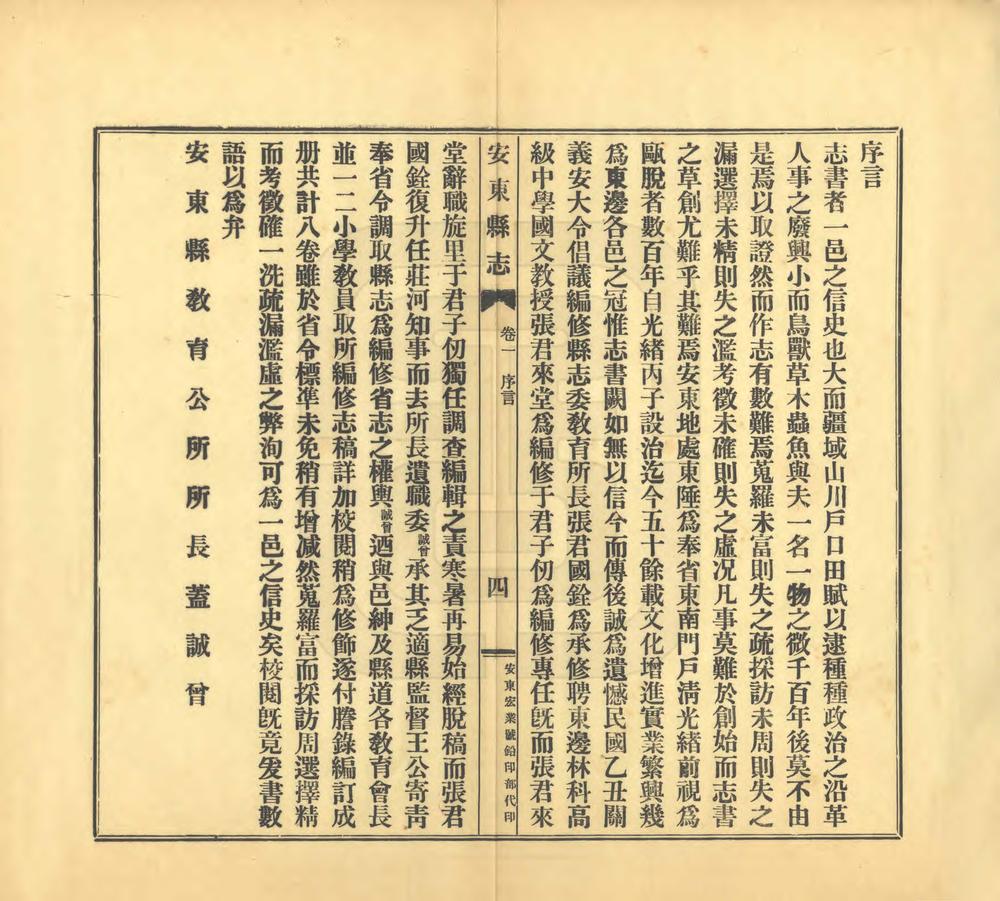 序言
志書者一邑之信史也大而疆域山川戶口田賦以逮種種政治之沿革
人事之廢興小而鳥獸草木蟲魚與夫一名一物之微千百年後莫不由
是焉以取證然而作志有數難焉蒐羅未富則失之疏採訪未周則失之
漏選擇未精則失之濫考徵未確則失之虛况凡事莫難於創始而志書
之草創尤難乎其難焉安東地處東陲爲奉省東南門戶淸光緒前視爲
甌脫者數百年自光緒丙子設治迄今五十餘載文化增進實業繁興幾
爲東邊各邑之冠惟志書闕如無以信今而傳後誠爲遺憾民國乙丑關
義安大令倡議編修縣志委敎育所長張君國銓爲承修聘東邊林科高
級中學國文敎授張君來堂爲編修于君子仞爲編修專任旣而張君來
安東縣志
卷一 序言
四
安東宏業號鉛印部代印
堂辭職旋里于君子仞獨任調查編輯之責寒暑再易始經脫稿而張君
國銓復升任莊河知事而去所長遺職委誠曾承其乏適縣監督王公寄靑
奉省令調取縣志爲編修省志之權輿誠曾迺與邑紳及縣道各敎育會長
並一二小學敎員取所編修志稿詳加校閱稍爲修飾遂付謄錄編訂成
册共計八卷雖於省令標準未免稍有增减然蒐羅富而採訪周選擇精
而考徵確一洗疏漏濫虛之弊洵可爲一邑之信史矣校閱旣竟爰書數
語以爲弁
安東縣敎育公所所長蓋誠曾